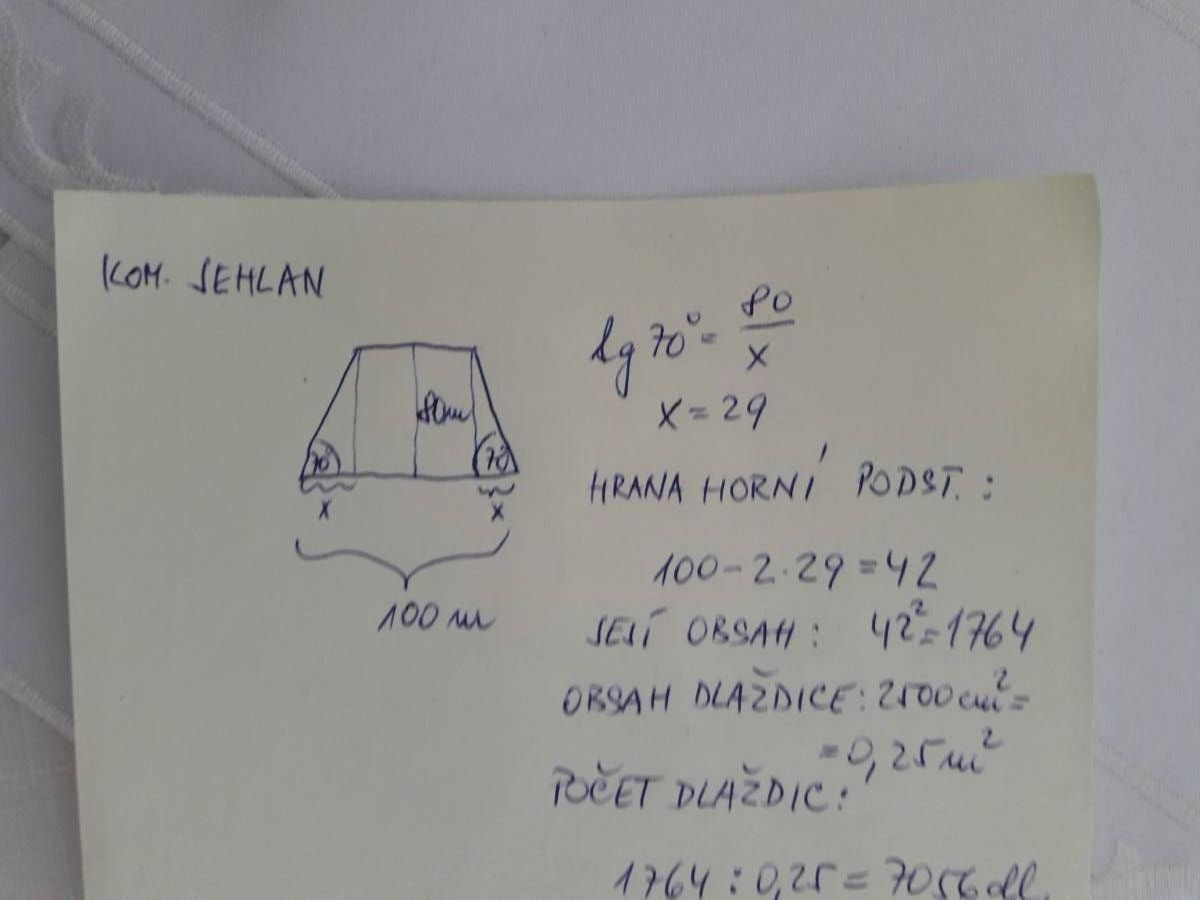 KOM. JEHLAN
tg 70° = 80/x
x = 29
80m
70°
70°
x
x
100 m
HRANA HORNÍ PODST. :
100 - 2·29 = 42
JEJÍ OBSAH : 42² = 1764
OBSAH DLAŽDICE : 2500 cm² =
= 0,25 m²
POČET DLAŽDIC :
1764 : 0,25 = 7056 dl.